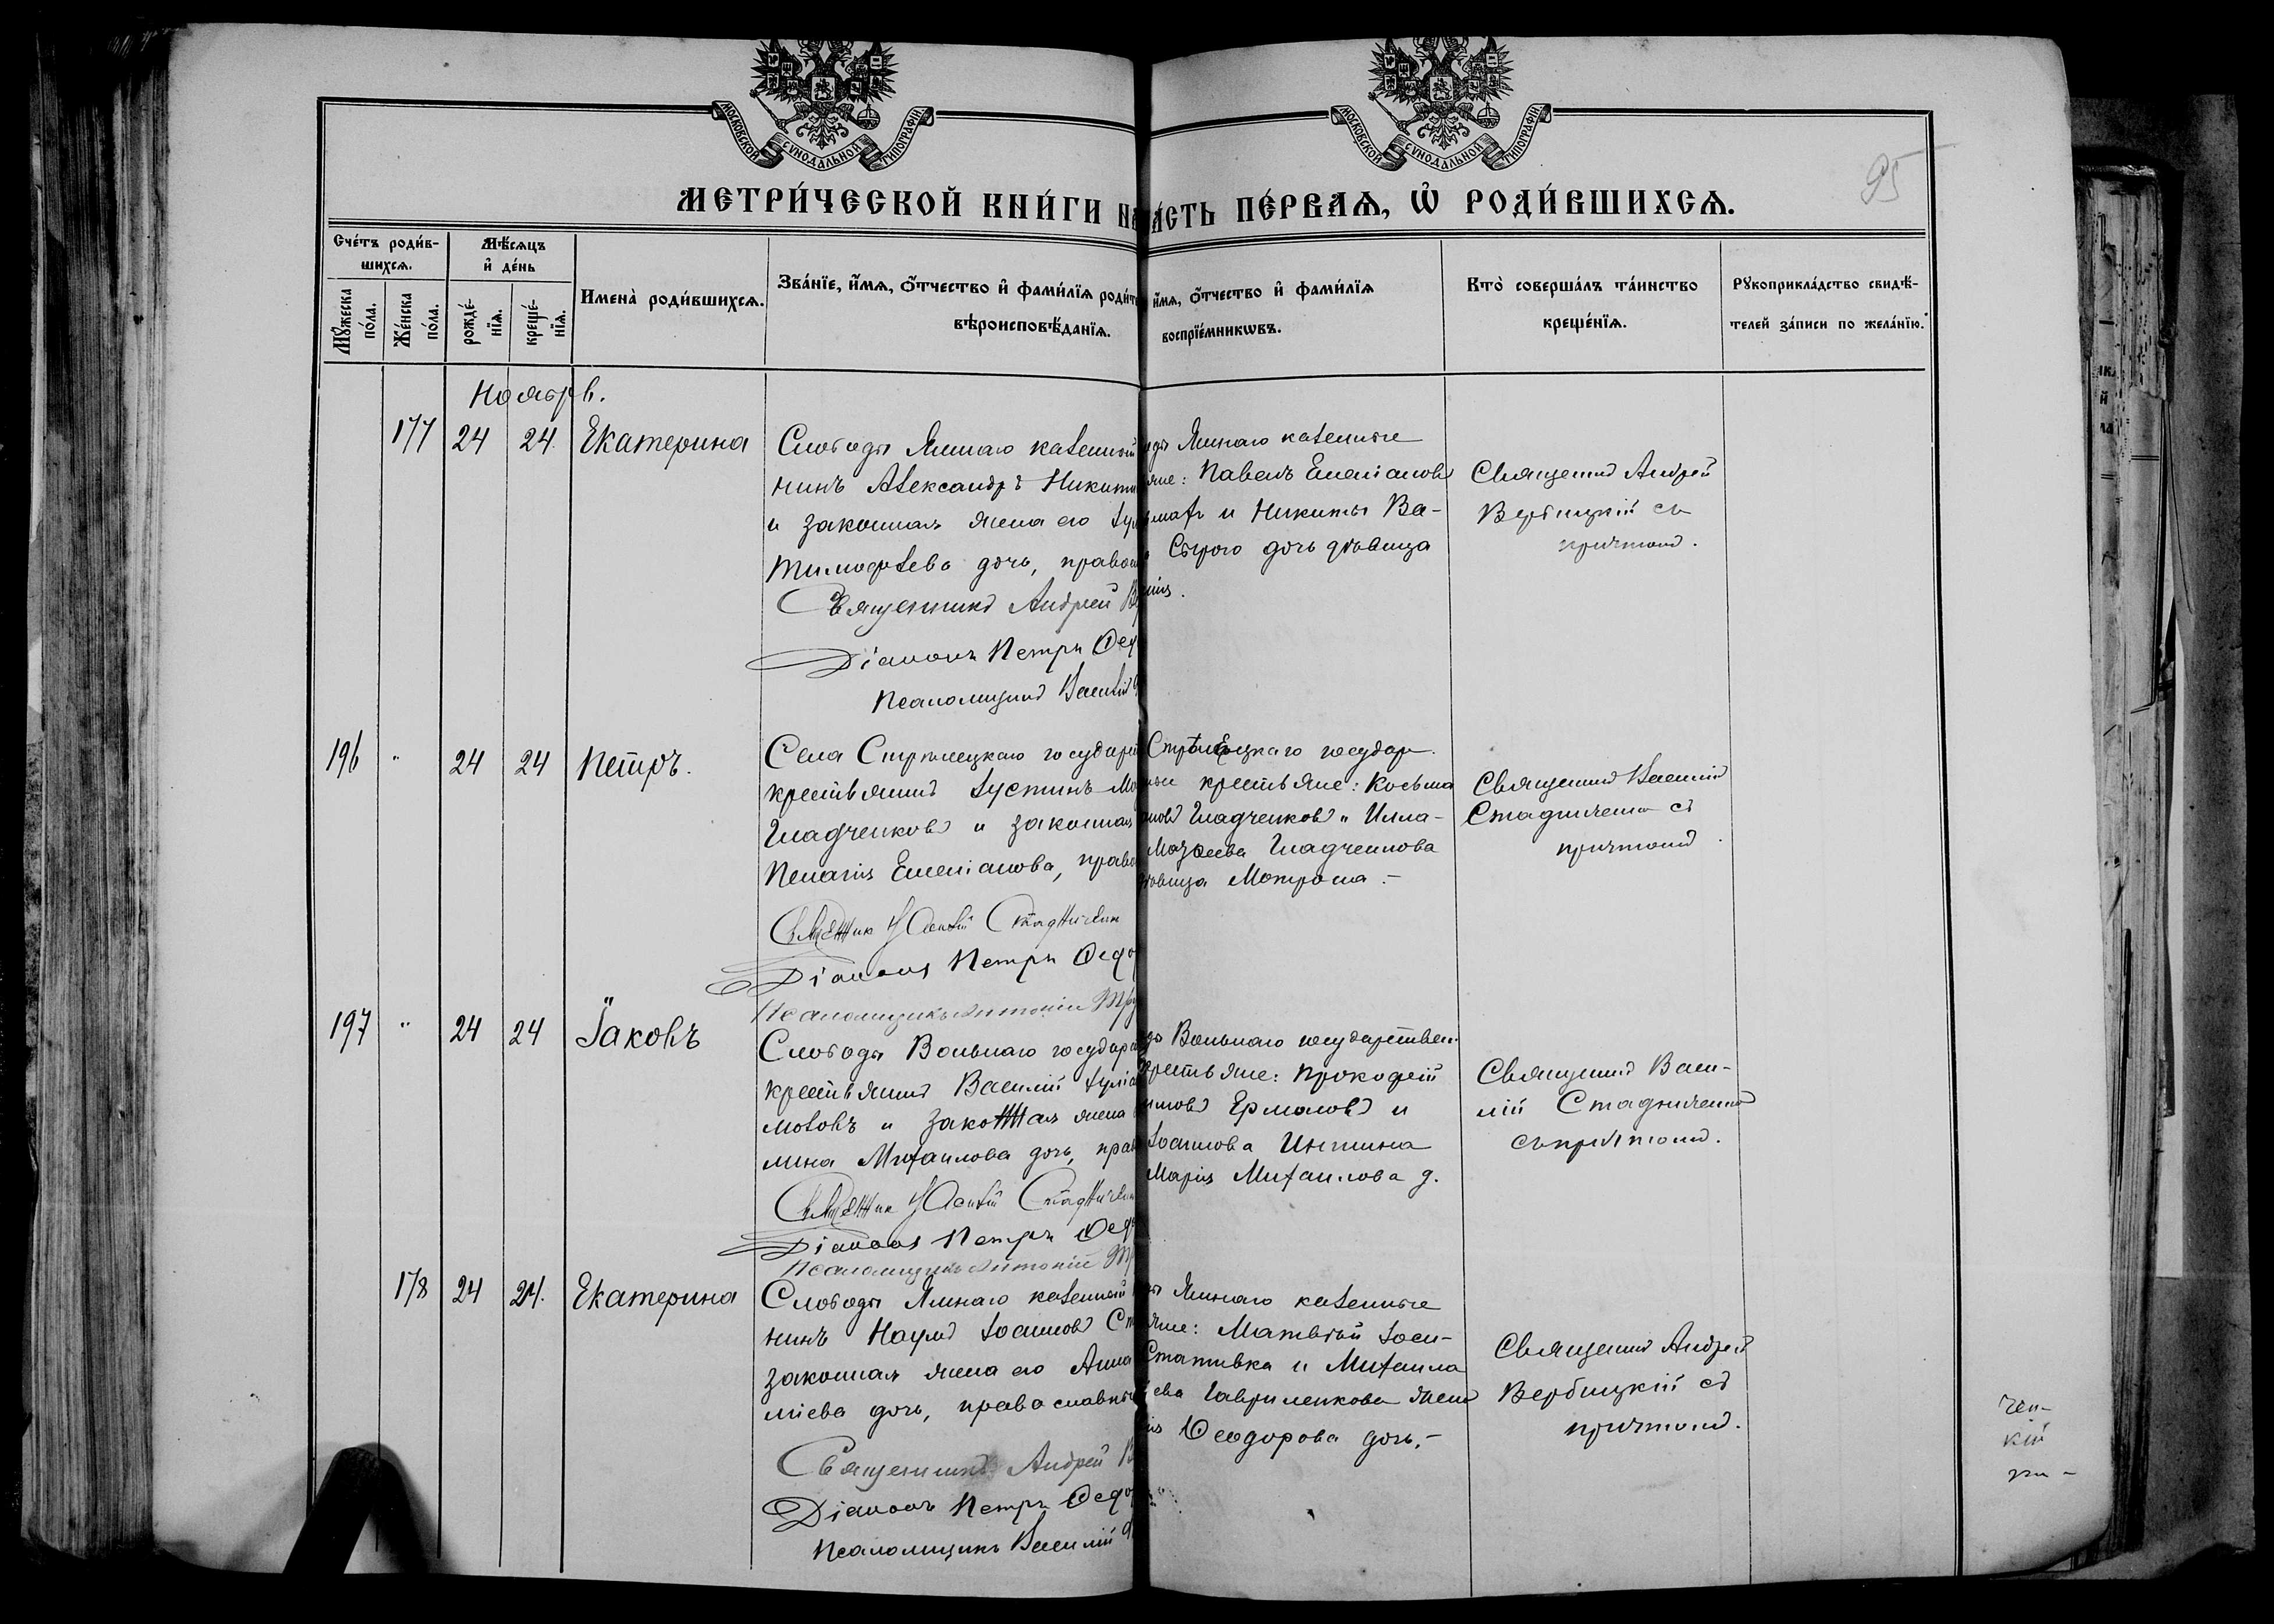 МОСКОВСКОЙ СѴНОДАЛЬНОЙ ТИПОГРАФІИ.
МОСКОВСКОЙ СѴНОДАЛЬНОЙ ТИПОГРАФІИ.
95
МЕТРИ́ЧЕСКОЙ КНИ́ГИ НА
ЧА́СТЬ ПЕ́РВАѦ, Ѡ РОДИ́ВШИХСѦ.
Сче́тъ роди́в-
шихсѧ.
Мꙋжеска
по́ла.
Же́нска
по́ла.
Мѣ́сѧцъ
и҆ де́нь
рожде́-
нїѧ.
креще́-
нїѧ.
Имена̀ роди́вшихсѧ.
Зва́нїе, и҆́мѧ, ѻ҆́тчество и҆ фами́лїѧ роди́т
вѣроисповѣ́данїѧ.
и҆́мѧ, ѻ҆́тчество и҆ фами́лїѧ
воспрїе́мникѡвъ.
Кто̀ соверша́лъ та́инство
креще́нїѧ.
Рꙋкоприкла́дство свидѣ́-
телей за́писи по жела́нїю.
Ноябрь.
177 24 24 Екатерина
Слободы Ямнаго казенный
нинъ Александръ Никити
и законная жена его
Тимофеева дочь, правос
Священникъ Андрей Ве
Діаконъ Петръ Ѳед
Псаломщикъ Василій
Ямнаго казенные
яне: Павелъ Емеліановъ
и Никиты Ва-
Сѣраго дочь дѣвица
Священникъ Андрей
Вербицкій съ
причтомъ.
196 " 24 24 Петръ.
Села Стрѣлецкаго государ
крестьянинъ Іустинъ Мо
Гладченковъ и законная
Пелагія Емеліанова, право
Священник Василій Стадниченк
Діаконъ Петръ Ѳедо
Псаломщикъ Антоній Тру
Стрѣлецкаго государ.
крестьяне: Косьма
Гладченковъ и Илла-
Гладченкова
дѣвица Мотрона.-
Священникъ Василій
Стадниченко съ
причтомъ
197 " 24 24 Іаковъ
Слободы Вольнаго государ
крестьянинъ Василій Іуліа
и законная жена
Михаилова дочь, прав
Священник Василій Стадничен
Діаконъ Петръ Ѳед
Псаломщикъ Антоній Тр
Вольнаго государствен.
крестьяне: Прокофій
Ермоловъ и
Іоаннова
Марія Михаилова д.
Священникъ Васи-
лій Стадниченко
съ причтомъ.
178 24 24. Екатерина
Слободы Ямнаго казенный
нинъ Наумъ Іоанновъ Ст
законная жена его Анна
міева дочь, православны
Священникъ Андрей В
Діаконъ Петръ Ѳедо
Псаломщикъ Василій
Ямнаго казенные
яне: Матвѣй Іоси-
Стативка и Михаила
Гавриленкова жена
Ѳеодорова дочь.-
Священникъ Андрей
Вербицкій съ
причтомъ.
чен-
кій